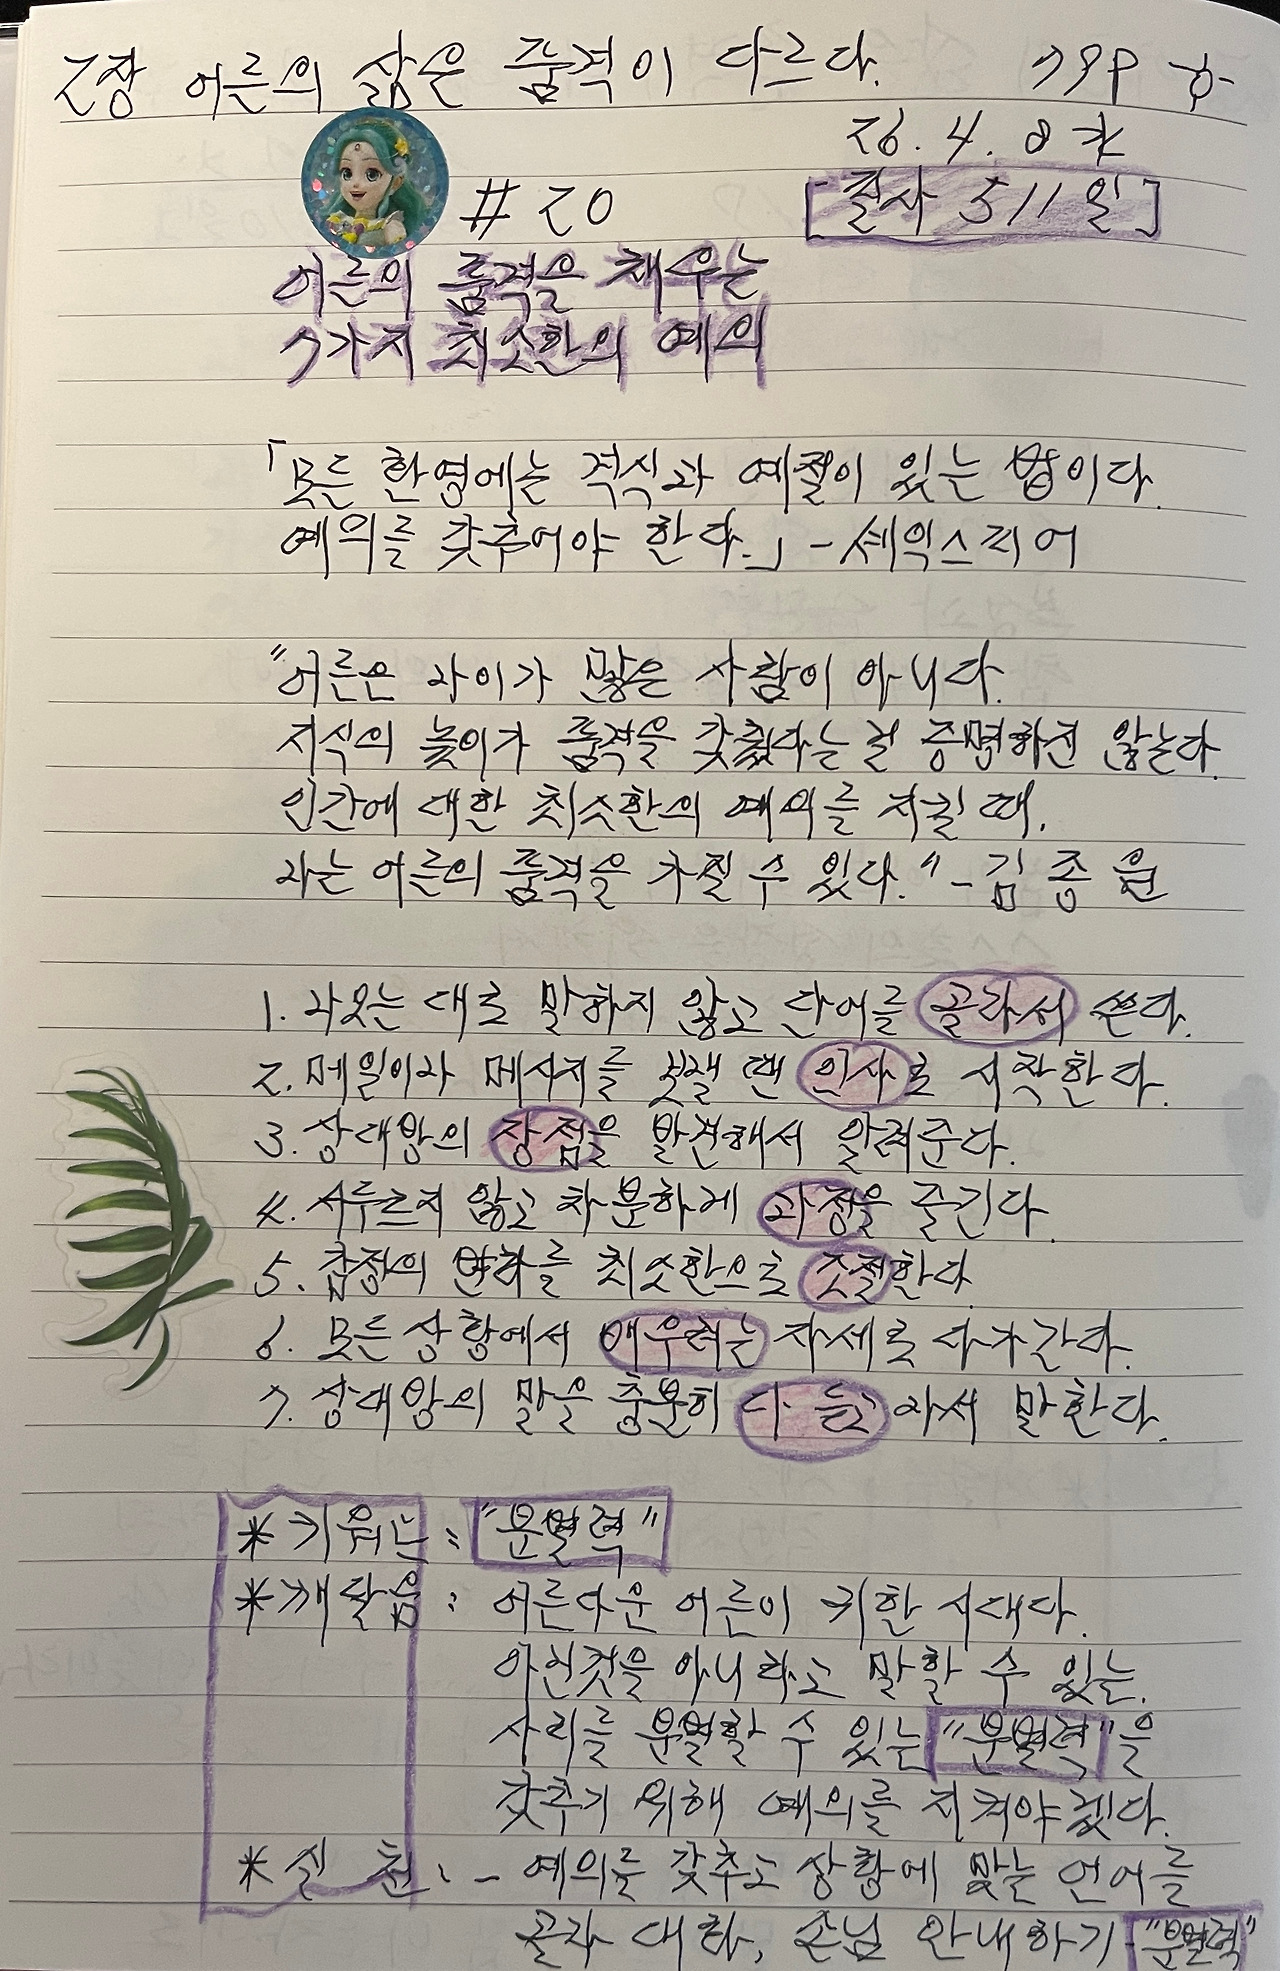 2장 어른의 삶은 품격이 다르다. 79P 하
26. 4. 8 水
#20 [필사 511일]
어른의 품격을 채우는
7가지 최소한의 예의
「모든 환영에는 격식과 예절이 있는 법이다.
예의를 갖추어야 한다.」 - 셰익스피어
"어른은 나이가 많은 사람이 아니다.
지식의 높이가 품격을 갖췄다는 걸 증명하진 않는다.
인간에 대한 최소한의 예의를 지킬 때,
나는 어른의 품격을 가질 수 있다." - 김종원
1. 나오는 대로 말하지 않고 단어를 골라서 쓴다.
2. 메일이나 메시지를 보낼 땐 인사로 시작한다.
3. 상대방의 장점을 발견해서 알려준다.
4. 서두르지 않고 차분하게 과정을 즐긴다.
5. 감정의 변화를 최소한으로 조절한다
6. 모든 상황에서 배우려는 자세로 다가간다.
7. 상대방의 말을 충분히 다 듣고 나서 말한다.
* 키워드 : "분별력"
* 깨달음 : 어른다운 어른이 귀한 시대다.
아닌것을 아니라고 말할 수 있는,
사리를 분별할 수 있는 "분별력"을
갖추기 위해 예의를 지켜야겠다.
* 실 천 : - 예의를 갖추고 상황에 맞는 언어를
골라 대화, 손님 안내하기 "분별력"